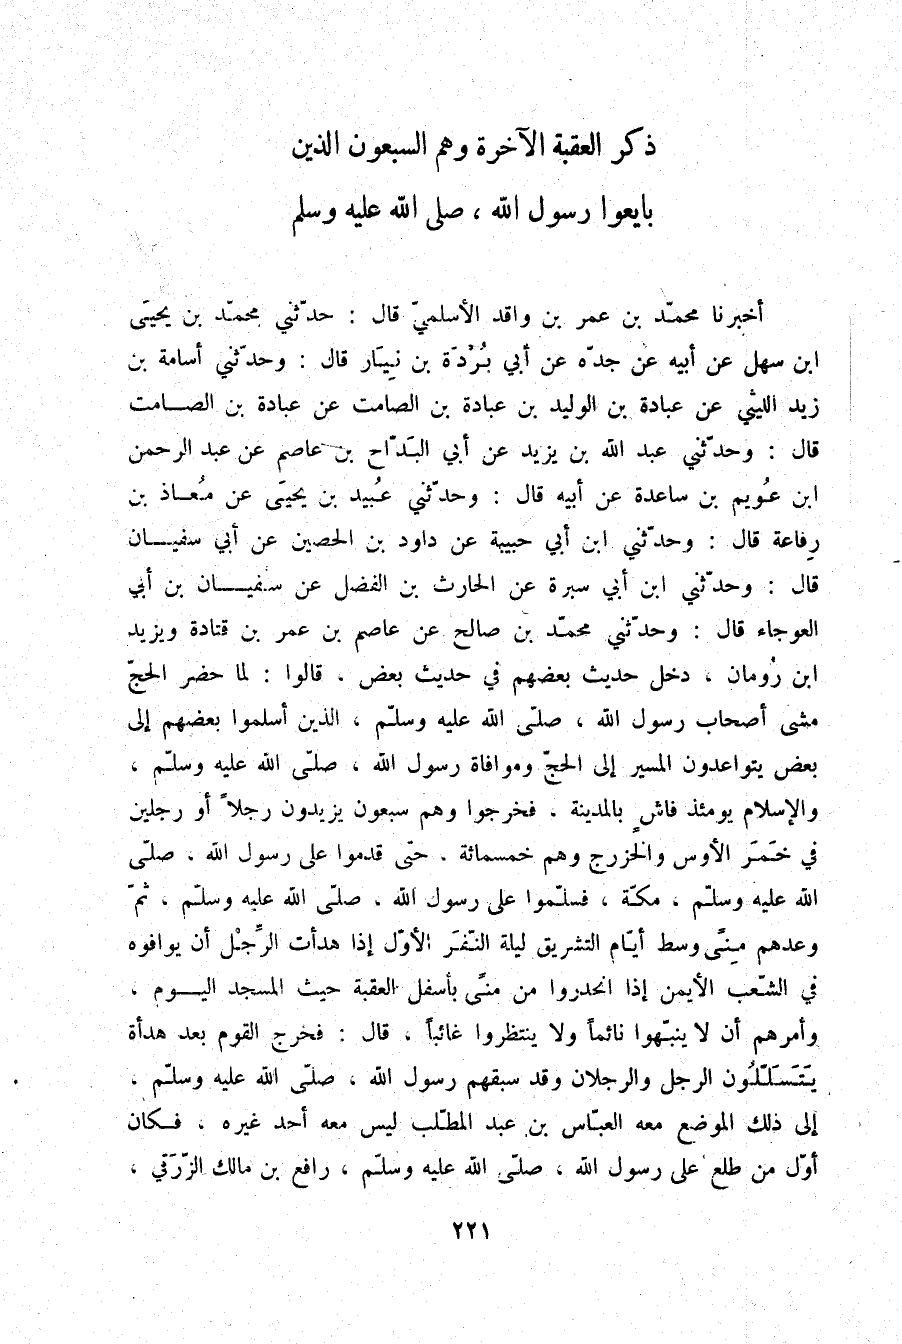 ذكر العقبة الآخرة وهم السبعون الذين
بايعوا رسول الله ، صلى الله عليه وسلم
أخبرنا محمّد بن عمر بن واقد الأسلميّ قال : حدّثني محمّد بن يحيَى
ابن سهل عن أبيه عن جدّه عن أبي بُرْدَة بن نِيَار قال : وحدّثني أسامة بن
زيد الليثي عن عبادة بن الوليد بن عبادة بن الصامت عن عبادة بن الصــامت
قال : وحدّثني عبد الله بن يزيد عن أبي البَدّاح بن عاصم عن عبد الرحمن
ابن عُويم بن ساعدة عن أبيه قال : وحدّثني عُبيد بن يحيَى عن مُعــاذ بن
رِفاعة قال : وحدّثني ابن أبي حبيبة عن داود بن الحصين عن أبي سفيــان
قال : وحدّثني ابن أبي سبرة عن الحارث بن الفضل عن سفيــــان بن أبي
العوجاء قال : وحدّثني محمّد بن صالح عن عاصم بن عمر بن قتادة ويزيد
ابن رُومان ، دخل حديث بعضهم في حديث بعض ، قالوا : لما حضر الحجّ
مشى أصحاب رسول الله ، صلّى الله عليه وسلّم ، الذين أسلموا بعضهم إلى
بعض يتواعدون المسير إلى الحجّ وموافاة رسول الله ، صلّى الله عليه وسلّم ،
والإسلام يومئذ فاشٍ بالمدينة . فخرجوا وهم سبعون يزيدون رجلاً أو رجلين
في خَمَرَ الأوس والخزرج وهم خمسمائة . حتّى قدموا على رسول الله ، صلّى
الله عليه وسلّم ، مكّة ، فسلّموا على رسول الله ، صلّى الله عليه وسلّم ، ثمّ
وعدهم مِنًى وسط أيّام التشريق ليلة النّفَرَ الأوّل إذا هدأت الرِّجْل أن يوافوه
في الشّعب الأيمن إذا انحدروا من منًى بأسفل العقبة حيث المسجد اليــوم ،
وأمرهم أن لا ينبّهوا نائماً ولا ينتظروا غائباً ، قال : فخرج القوم بعد هدأة
يَتَسَلّلُون الرجل والرجلان وقد سبقهم رسول الله ، صلّى الله عليه وسلّم ،
إلى ذلك الموضع معه العبّاس بن عبد المطّلب ليس معه أحد غيره ، فــكان
أوّل من طلع على رسول الله ، صلّى الله عليه وسلّم ، رافع بن مالك الزّرَقي ،
٢٢١